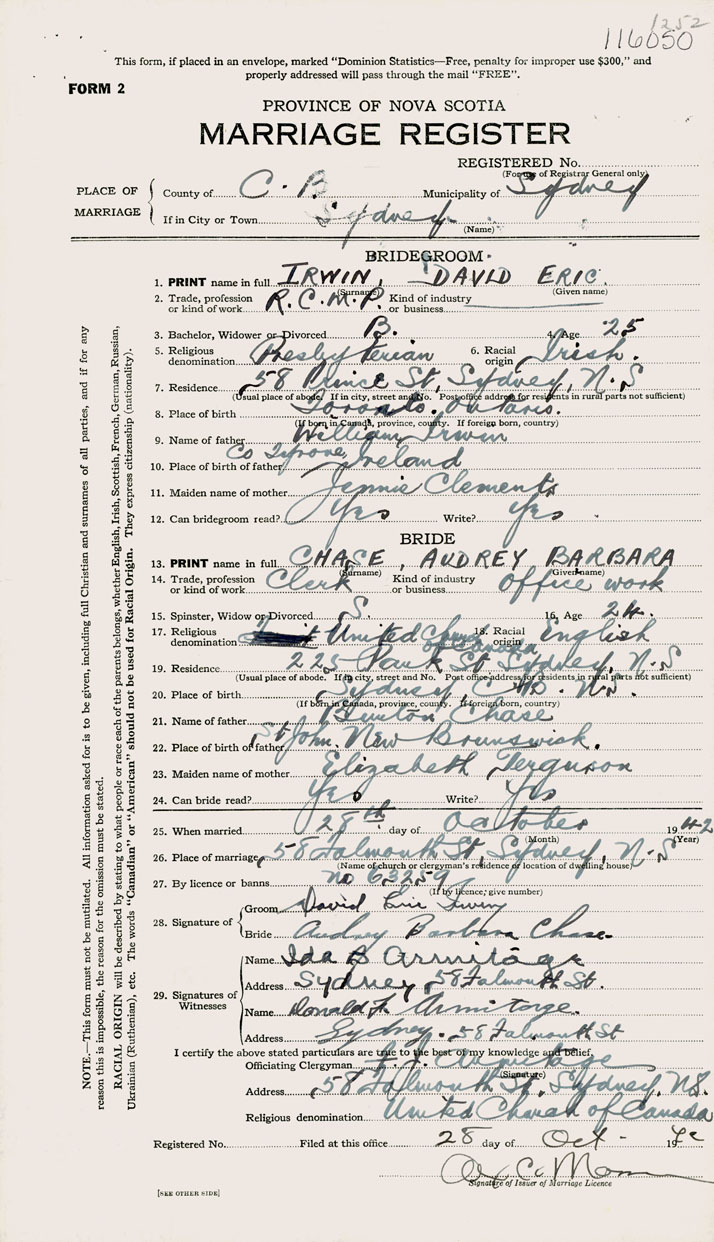 1252
116050
This form, if placed in an envelope, marked "Dominion Statistics—Free, penalty for improper use $300," and
properly addressed will pass through the mail "FREE".
FORM 2
PROVINCE OF NOVA SCOTIA
MARRIAGE REGISTER
REGISTERED No.
(For use of Registrar General only)
PLACE OF MARRIAGE
County of C. B Municipality of Sydney
If in City or Town Sydney
(Name)
BRIDEGROOM
1. PRINT name in full IRWIN, DAVID ERIC.
(Surname) (Given name)
2. Trade, profession or kind of work R.C.M.P. Kind of industry or business
3. Bachelor, Widower or Divorced B. 4. Age 25
5. Religious denomination Presbyterian 6. Racial origin Irish.
7. Residence 58 Prince St, Sydney, N.S
(Usual place of abode. If in city, street and No. Post office address for residents in rural parts not sufficient)
8. Place of birth Toronto. Ontario.
(If born in Canada, province, county. If foreign born, country)
9. Name of father William Irwin
10. Place of birth of father Co Tyrone, Ireland
11. Maiden name of mother Jennie Clements
12. Can bridegroom read? Yes Write? Yes
BRIDE
13. PRINT name in full CHASE, AUDREY BARBARA
(Surname) (Given name)
14. Trade, profession or kind of work Clerk Kind of industry or business office work
15. Spinster, Widow or Divorced S. 16. Age 24.
17. Religious denomination United Church of Canada 18. Racial origin English
19. Residence 225 Park St Sydney, N.S
(Usual place of abode. If in city, street and No. Post office address for residents in rural parts not sufficient)
20. Place of birth Sydney, C.B. N.S.
(If born in Canada, province, county. If foreign born, country)
21. Name of father Chase
22. Place of birth of father St John, New Brunswick.
23. Maiden name of mother Elizabeth Ferguson
24. Can bride read? Yes Write? Yes
25. When married 28th day of October 1942
(Month) (Year)
26. Place of marriage 58 Falmouth St, Sydney, N.S
(Name of church or clergyman's residence or location of dwelling house)
27. By licence or banns no 63259
(If by licence, give number)
28. Signature of
Groom David Eric Irwin
Bride Audrey Barbara Chase.
29. Signatures of Witnesses
Name Ida B Armitage
Address Sydney 58 Falmouth St.
Name Donald F. Armitage.
Address Sydney. 58 Falmouth St
I certify the above stated particulars are true to the best of my knowledge and belief.
Officiating Clergyman Armitage
(Signature)
Address 58 Falmouth St, Sydney, N.S.
Religious denomination United Church of Canada
Registered No. Filed at this office 28 day of Oct - 1942
Signature of Issuer of Marriage Licence
[SEE OTHER SIDE]
NOTE.—This form must not be mutilated. All information asked for is to be given, including full Christian and surnames of all parties, and if for any
reason this is impossible, the reason for the omission must be stated.
RACIAL ORIGIN will be described by stating to what people or race each of the parents belongs, whether English, Irish, Scottish, French, German, Russian,
Ukrainian (Ruthenian), etc. The words "Canadian" or "American" should not be used for Racial Origin. They express citizenship (nationality).